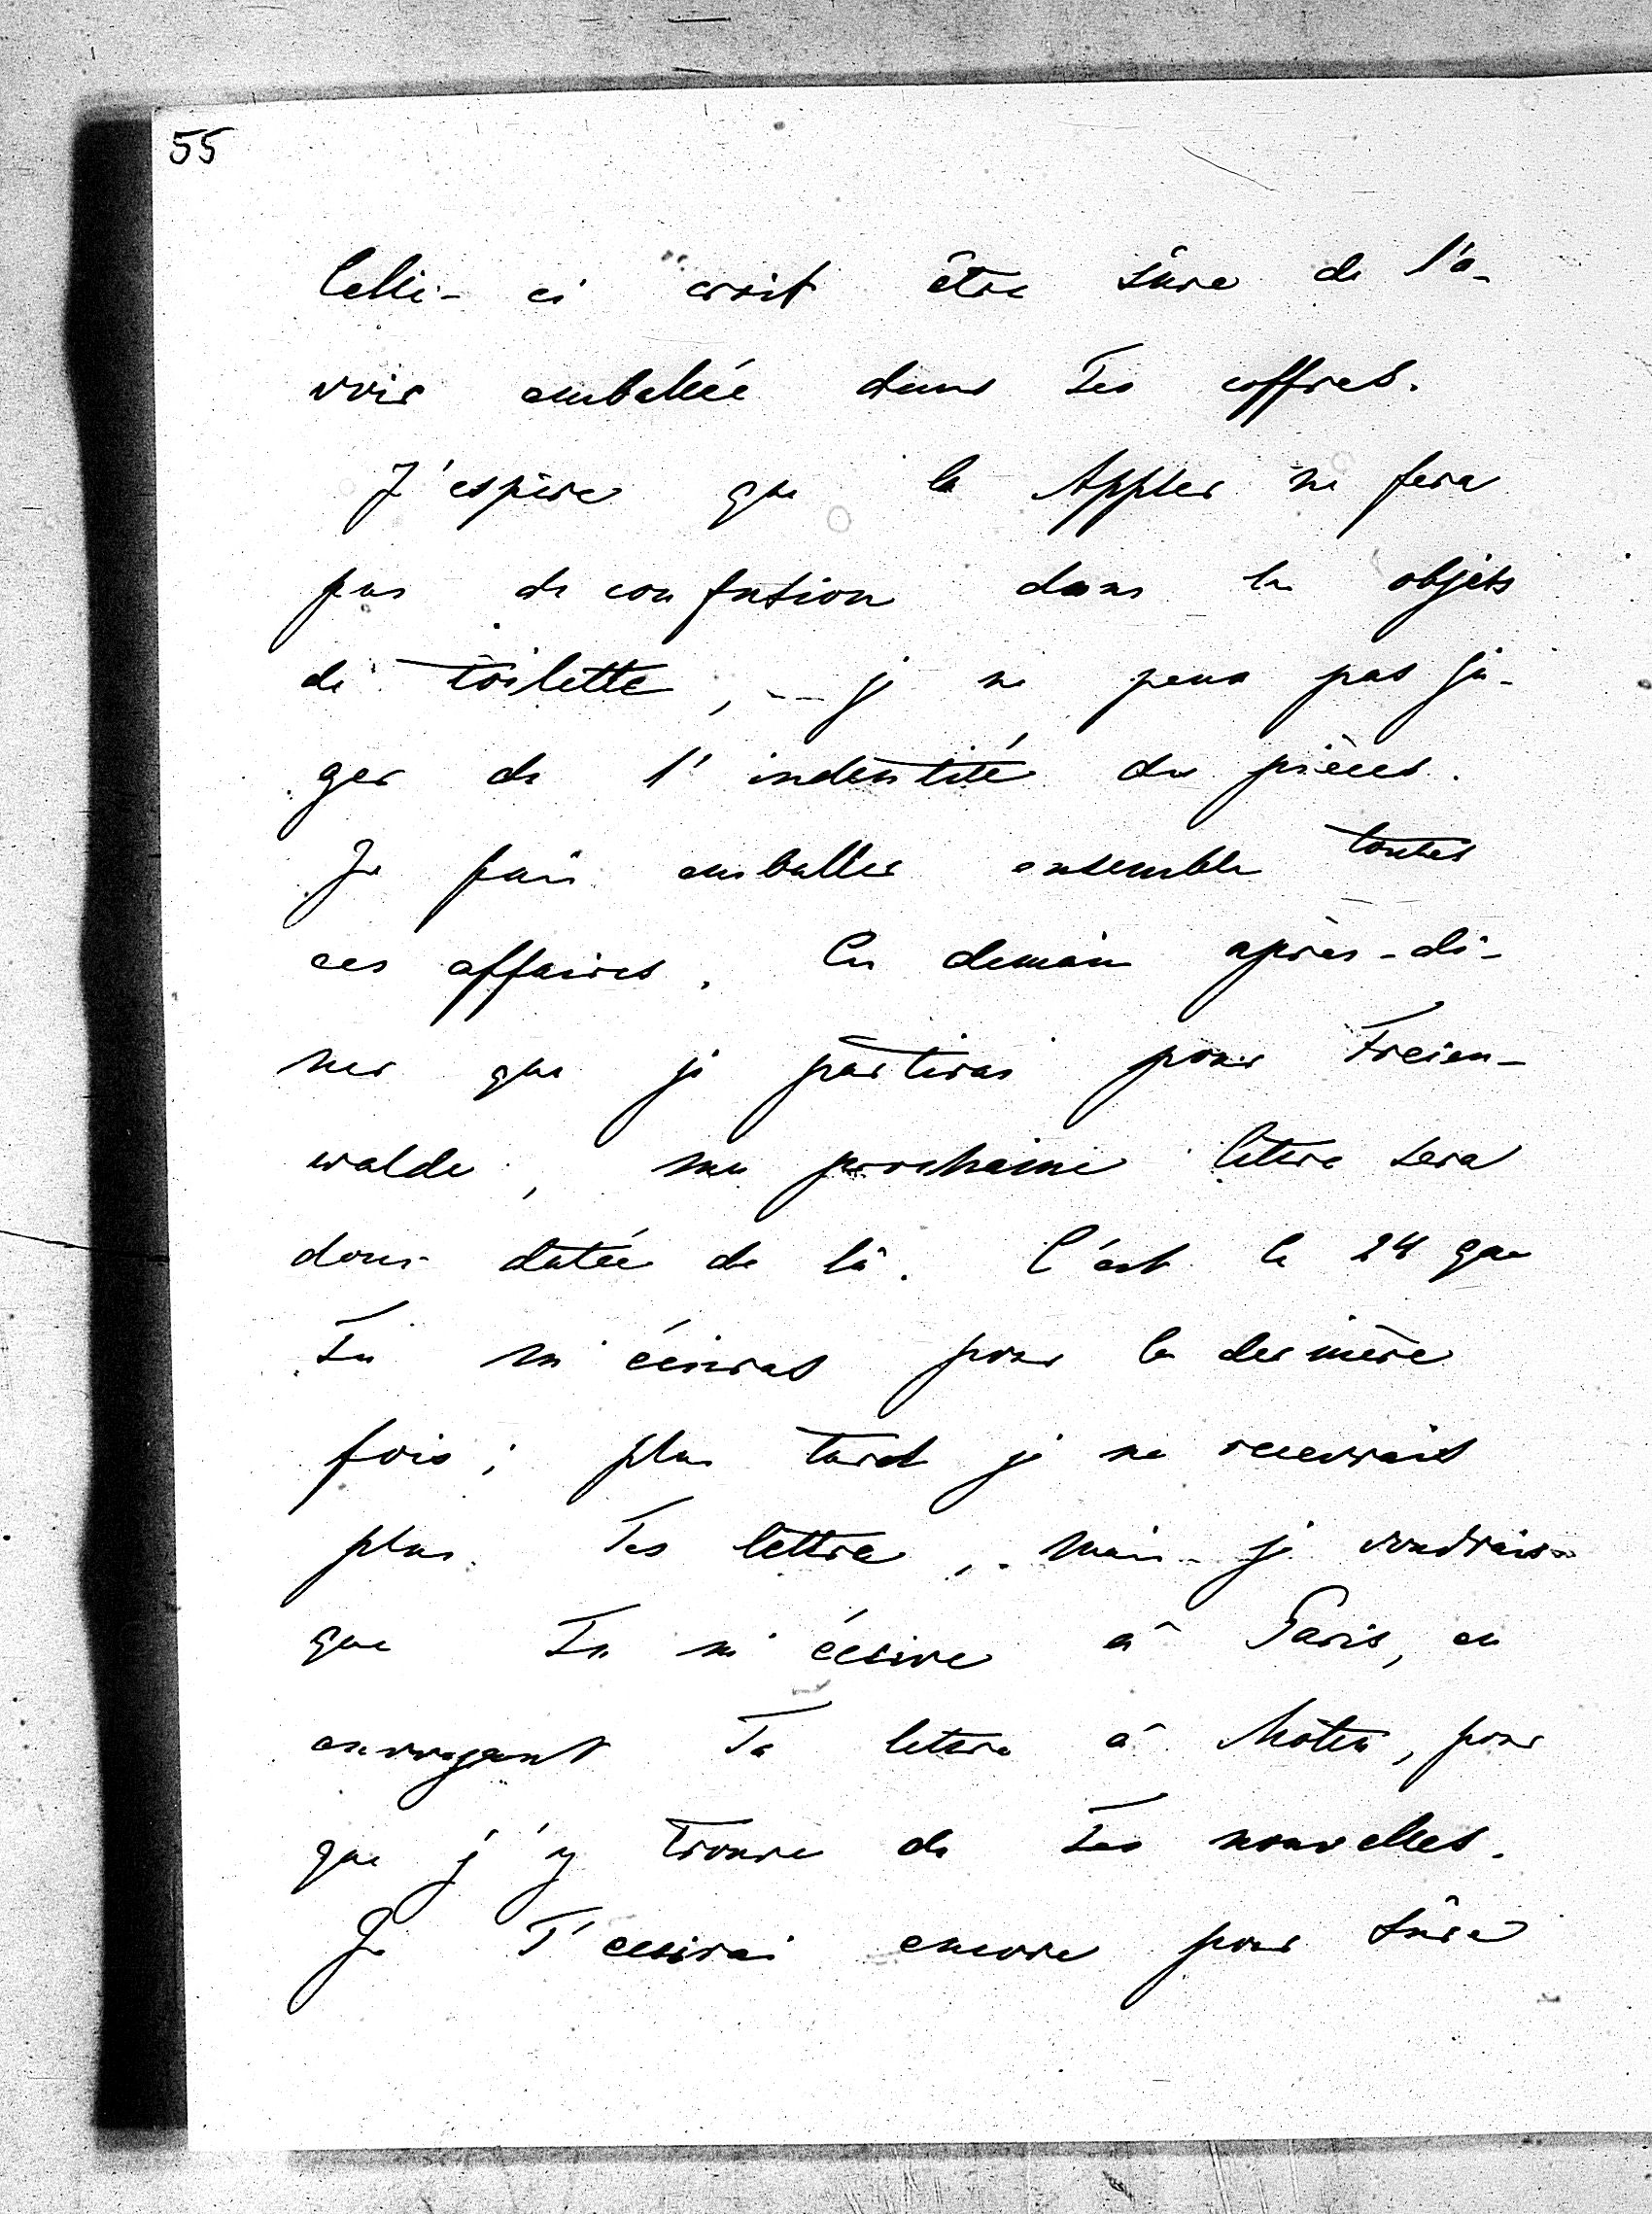 55
Celle-ci croit être sûre de l'a-
voir emballée dans Tes coffres.
J'espère que la Appler ne fera
pas de confusion dans les objets
de toilette, je ne peux pas ju-
ger de l'indentité des pièces.
Je fais emballer ensemble toutes
ces affaires. C'es demain après-di-
ner que je partirai pour Freien-
walde, ma prochaine lettre sera
donc datée de là. C'est le 24 que
Tu m'écriras pour la dernière
fois; plus tard je ne recevrais
plus Tes lettre, mais je voudrais
que Tu m'écrive à Paris, en
envoyant Ta lettre à pour
que j'y trouve de Tes nouvelles.
Je T'écrirai encore pour sûre